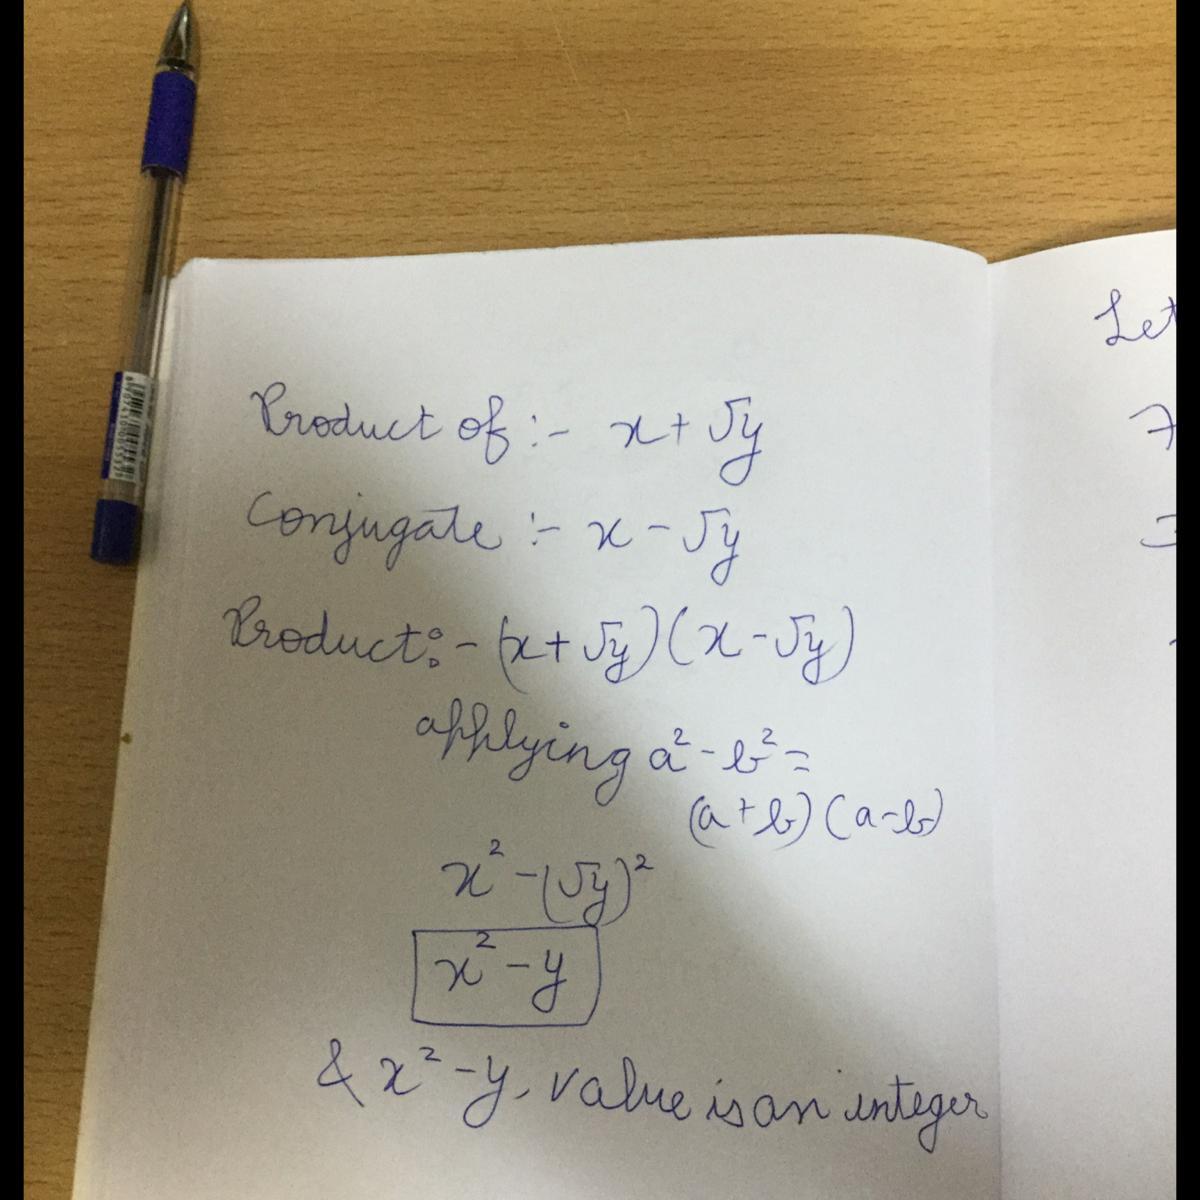 Product of :- x + √y
Conjugate :- x - √y
Product:- (x + √y) (x - √y)
applying a² - b² =
(a + b) (a - b)
x² - (√y)²
x² - y
& x² - y, value is an integer
Let
7